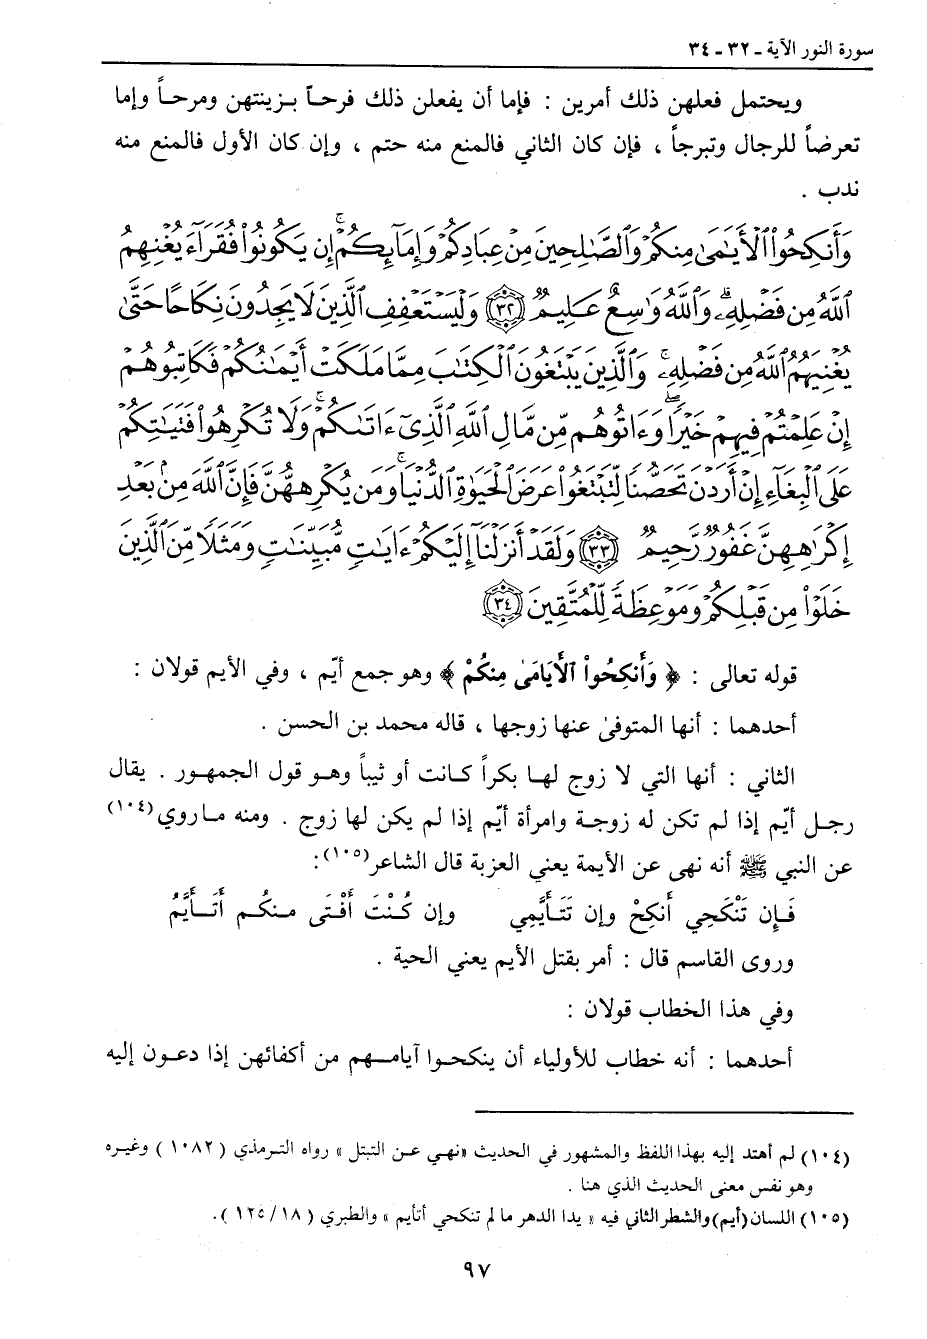 سورة النور الآية ـ ٣٢ ـ ٣٤
ويحتمل فعلهن ذلك أمرين : فإما أن يفعلن ذلك فرحاً بزينتهن ومرحاً وإما
تعرضاً للرجال وتبرجاً ، فإن كان الثاني فالمنع منه حتم ، وإن كان الأول فالمنع منه
ندب .
وَأَنكِحُوا۟ ٱلْأَيَـٰمَىٰ مِنكُمْ وَٱلصَّـٰلِحِينَ مِنْ عِبَادِكُمْ وَإِمَآئِكُمْ ۚ إِن يَكُونُوا۟ فُقَرَآءَ يُغْنِهِمُ
ٱللَّهُ مِن فَضْلِهِۦ ۗ وَٱللَّهُ وَٰسِعٌ عَلِيمٌ ﴿٣٢﴾ وَلْيَسْتَعْفِفِ ٱلَّذِينَ لَا يَجِدُونَ نِكَاحًا حَتَّىٰ
يُغْنِيَهُمُ ٱللَّهُ مِن فَضْلِهِۦ ۗ وَٱلَّذِينَ يَبْتَغُونَ ٱلْكِتَـٰبَ مِمَّا مَلَكَتْ أَيْمَـٰنُكُمْ فَكَاتِبُوهُمْ
إِنْ عَلِمْتُمْ فِيهِمْ خَيْرًا ۖ وَءَاتُوهُم مِّن مَّالِ ٱللَّهِ ٱلَّذِىٓ ءَاتَىٰكُمْ ۚ وَلَا تُكْرِهُوا۟ فَتَيَـٰتِكُمْ
عَلَى ٱلْبِغَآءِ إِنْ أَرَدْنَ تَحَصُّنًا لِّتَبْتَغُوا۟ عَرَضَ ٱلْحَيَوٰةِ ٱلدُّنْيَا ۚ وَمَن يُكْرِههُّنَّ فَإِنَّ ٱللَّهَ مِنۢ بَعْدِ
إِكْرَٰهِهِنَّ غَفُورٌ رَّحِيمٌ ﴿٣٣﴾ وَلَقَدْ أَنزَلْنَآ إِلَيْكُمْ ءَايَـٰتٍ مُّبَيِّنَـٰتٍ وَمَثَلًا مِّنَ ٱلَّذِينَ
خَلَوْا۟ مِن قَبْلِكُمْ وَمَوْعِظَةً لِّلْمُتَّقِينَ ﴿٣٤﴾
قوله تعالى : ﴿ وَأَنكِحُواْ الْأَيَامَىٰ مِنكُمْ ﴾ وهو جمع أيّم ، وفي الأيم قولان :
أحدهما : أنها المتوفىٰ عنها زوجها ، قاله محمد بن الحسن .
الثاني : أنها التي لا زوج لها بكراً كانت أو ثيباً وهو قول الجمهور . يقال
رجل أيّم إذا لم تكن له زوجة وامرأة أيّم إذا لم يكن لها زوج . ومنه ما روي(١٠٤)
عن النبي ﷺ أنه نهى عن الأيمة يعني العزبة قال الشاعر(١٠٥):
فَإِن تَنْكَحِي أَنكِحْ وإن تَتَأَيَّمِي وإن كُنْتَ أَفْتَى منكُم أَتَأَيَّمُ
وروى القاسم قال : أمر بقتل الأيم يعني الحية .
وفي هذا الخطاب قولان :
أحدهما : أنه خطاب للأولياء أن ينكحوا آيامهم من أكفائهن إذا دعون إليه
(١٠٤) لم أهتد إليه بهذا اللفظ والمشهور في الحديث «نهي عن التبتل» رواه الترمذي ( ١٠٨٢ ) وغيره
وهو نفس معنى الحديث الذي هنا .
(١٠٥) اللسان (أيم) والشطر الثاني فيه « يدا الدهر ما لم تنكحي أتأيم » والطبري ( ١٨/ ١٢٥ ).
٩٧